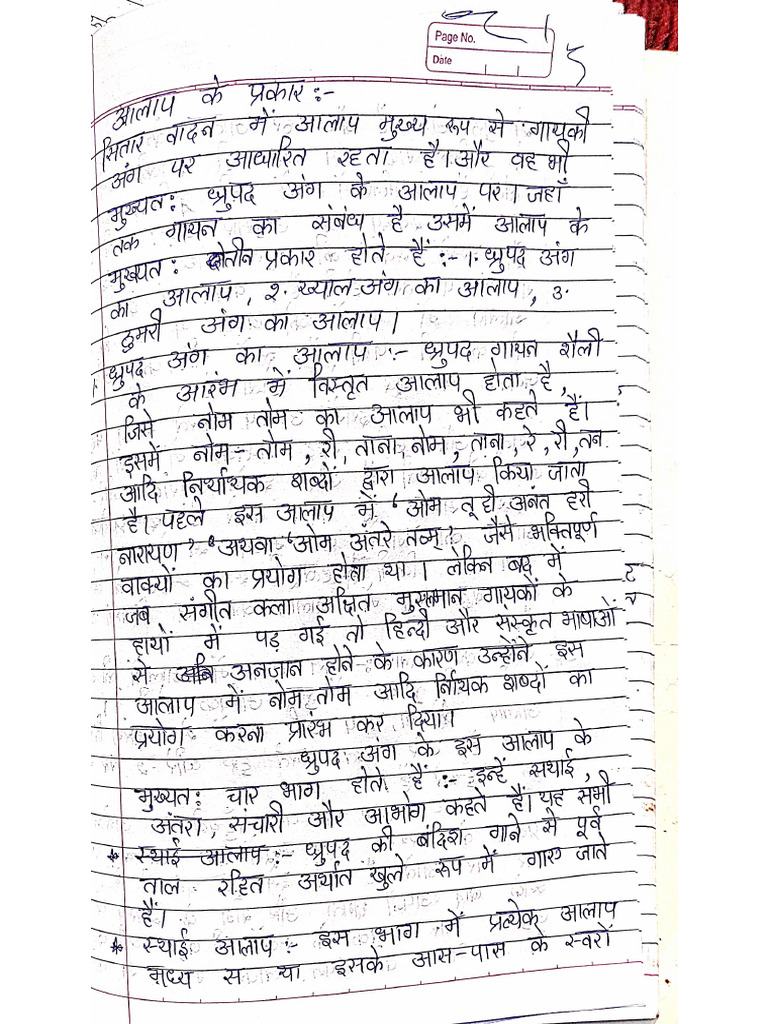 Page No.
Date
5
आलाप के प्रकार :-
सितार वादन में आलाप मुख्य रूप से गायकी
अंग पर आधारित रहता है। और वह भी
मुख्यत: ध्रुपद अंग के आलाप पर। जहाँ
तक गायन का संबंध है उसमें आलाप के
मुख्यत: तीन प्रकार होते हैं :- 1. ध्रुपद अंग
का आलाप, २. ख्याल अंग का आलाप, ३.
ठुमरी अंग का आलाप।
ध्रुपद अंग का आलाप :- ध्रुपद गायन शैली
के आरंभ में विस्तृत आलाप होता है,
जिसे नोम तोम का आलाप भी कहते हैं।
इसमें नोम-तोम, री, ताना, नोम, ताना, रे, री, तन
आदि शब्दों द्वारा आलाप किया जाता
है। पहले इस आलाप में 'ओम तू ही अनंत हरी
नारायण' अथवा 'ओम अंतरे तव्म्' जैसे भक्तिपूर्ण
वाक्यों का प्रयोग होता था। लेकिन बाद में
जब संगीत कला मुसलमान गायकों के
हाथों में पड़ गई तो हिन्दी और संस्कृत भाषाओं
से अनजान होने के कारण उन्होंने इस
आलाप में नोम तोम आदि शब्दों का
प्रयोग करना प्रारंभ कर दिया।
ध्रुपद अंग के इस आलाप के
मुख्यत: चार भाग होते हैं :- इन्हें सथाई,
अंतरा, संचारी और आभोग कहते हैं। यह सभी
* स्थाई आलाप :- ध्रुपद की बंदिश गाने से पूर्व
ताल रहित अर्थात खुले रूप में गाए जाते
हैं।
* स्थाई आलाप :- इस भाग में प्रत्येक आलाप
मध्य स या इसके आस-पास के स्वरों